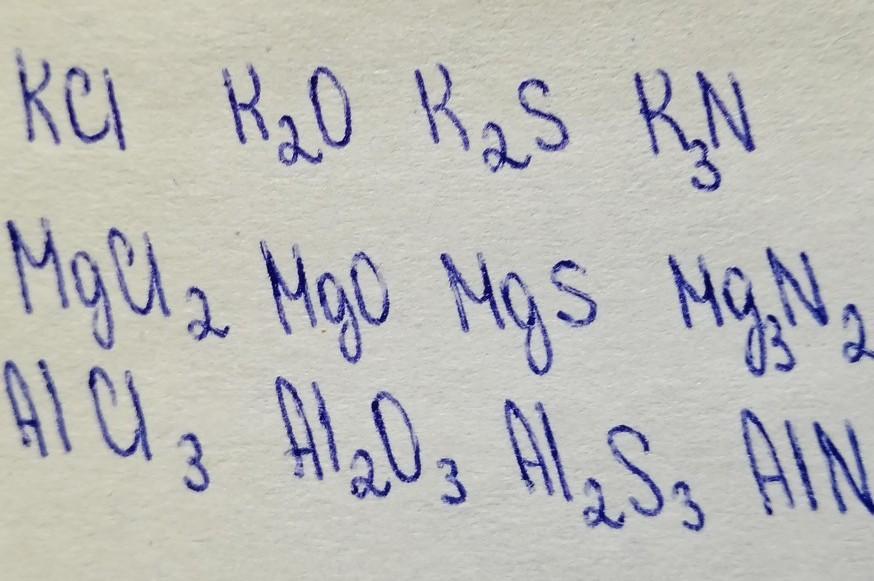 KCl K₂O K₂S K₃N
MgCl₂ MgO MgS Mg₃N₂
AlCl₃ Al₂O₃ Al₂S₃ AlN